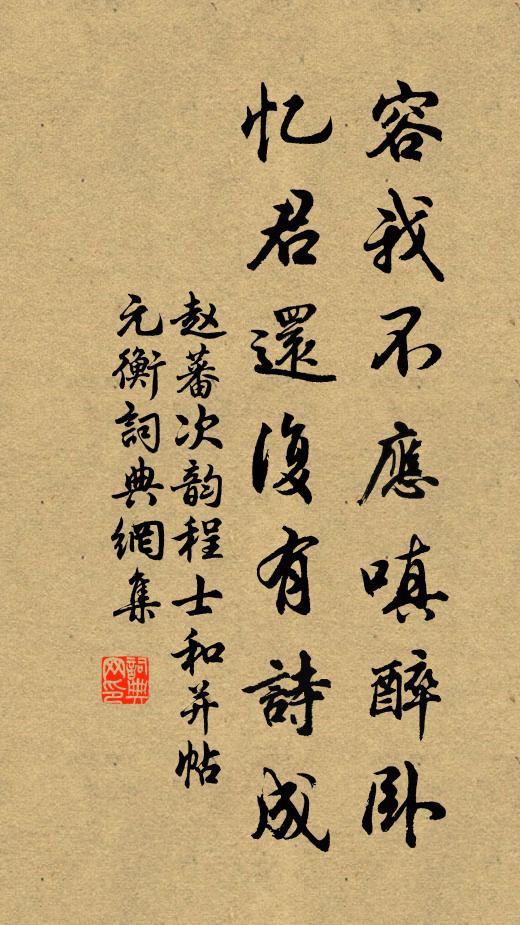 容我不應嗔醉卧
忆君還復有詩成
赵蕃次韵程士和并帖
元衡詞典網集
詞典网印